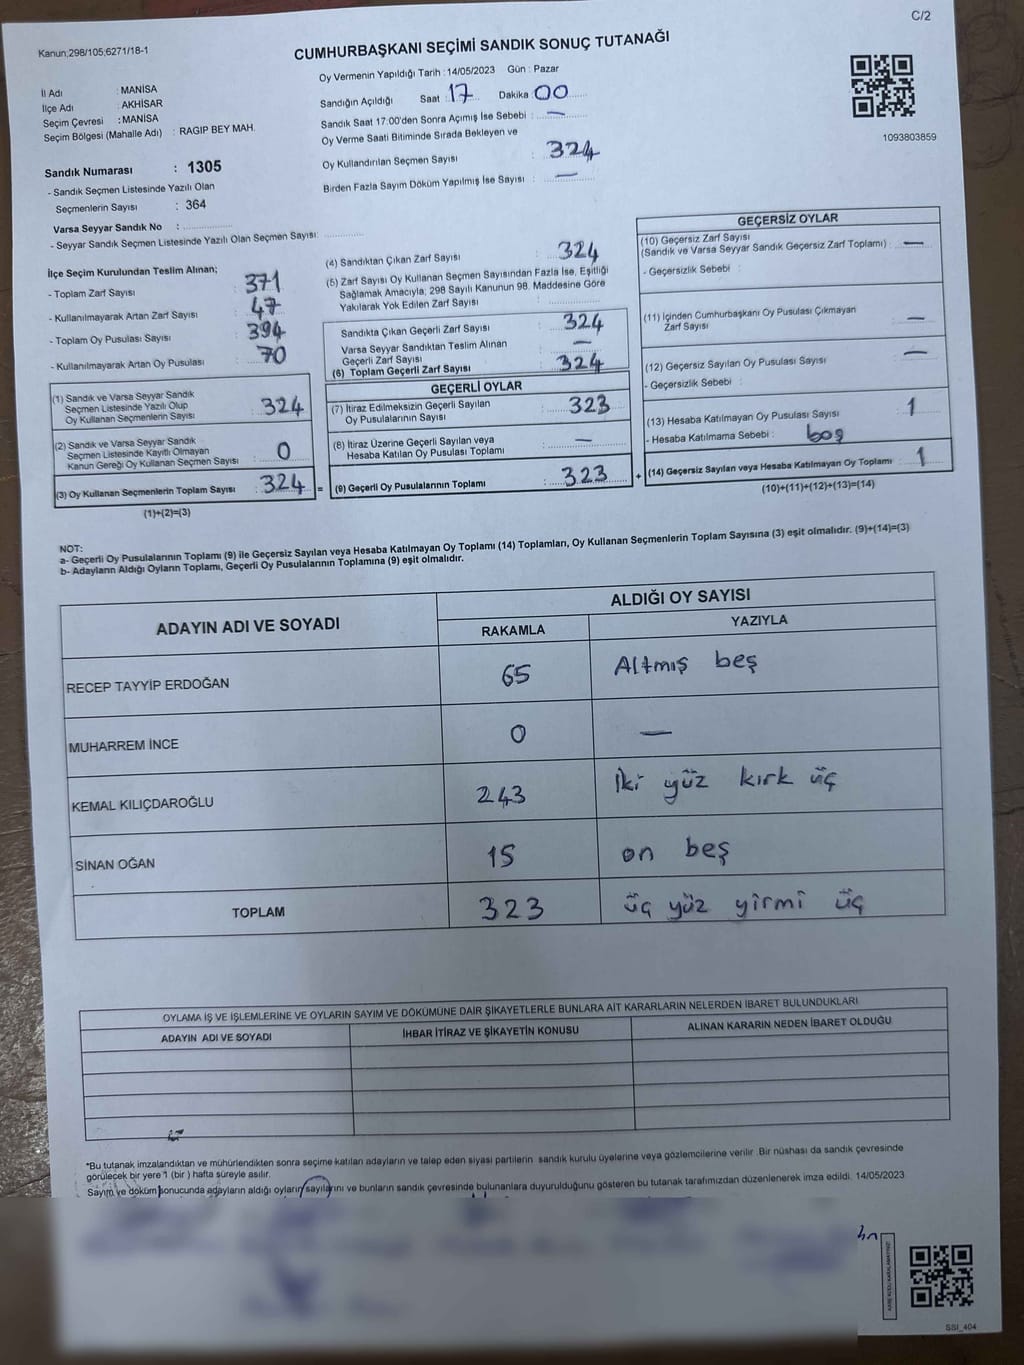 C/2
Kanun;298/105;6271/18-1
CUMHURBAŞKANI SEÇİMİ SANDIK SONUÇ TUTANAĞI
İl Adı : MANİSA
İlçe Adı : AKHİSAR
Seçim Çevresi : MANİSA
Seçim Bölgesi (Mahalle Adı) : RAGIP BEY MAH.
Sandık Numarası : 1305
- Sandık Seçmen Listesinde Yazılı Olan
Seçmenlerin Sayısı : 364
Varsa Seyyar Sandık No :
- Seyyar Sandık Seçmen Listesinde Yazılı Olan Seçmen Sayısı:
Oy Vermenin Yapıldığı Tarih : 14/05/2023 Gün : Pazar
Sandığın Açıldığı Saat 17 Dakika 00
Sandık Saat 17:00'den Sonra Açımış İse Sebebi : —
Oy Verme Saati Bitiminde Sırada Bekleyen ve
Oy Kullandırılan Seçmen Sayısı : 324
Birden Fazla Sayım Döküm Yapılmış İse Sayısı : —
1093803859
İlçe Seçim Kurulundan Teslim Alınan;
- Toplam Zarf Sayısı : 371
- Kullanılmayarak Artan Zarf Sayısı : 47
- Toplam Oy Pusulası Sayısı : 394
- Kullanılmayarak Artan Oy Pusulası : 70
(1) Sandık ve Varsa Seyyar Sandık
Seçmen Listesinde Yazılı Olup
Oy Kullanan Seçmenlerin Sayısı : 324
(2) Sandık ve Varsa Seyyar Sandık
Seçmen Listesinde Kayıtlı Olmayan
Kanun Gereği Oy Kullanan Seçmen Sayısı : 0
(3) Oy Kullanan Seçmenlerin Toplam Sayısı : 324 =
(1)+(2)=(3)
(4) Sandıktan Çıkan Zarf Sayısı : 324
(5) Zarf Sayısı Oy Kullanan Seçmen Sayısından Fazla İse, Eşitliği
Sağlamak Amacıyla; 298 Sayılı Kanunun 98. Maddesine Göre
Yakılarak Yok Edilen Zarf Sayısı :
Sandıkta Çıkan Geçerli Zarf Sayısı : 324
Varsa Seyyar Sandıktan Teslim Alınan
Geçerli Zarf Sayısı : —
(6) Toplam Geçerli Zarf Sayısı : 324
GEÇERLİ OYLAR
(7) İtiraz Edilmeksizin Geçerli Sayılan
Oy Pusulalarının Sayısı : 323
(8) İtiraz Üzerine Geçerli Sayılan veya
Hesaba Katılan Oy Pusulası Toplamı : —
(9) Geçerli Oy Pusulalarının Toplamı : 323 +
GEÇERSİZ OYLAR
(10) Geçersiz Zarf Sayısı
(Sandık ve Varsa Seyyar Sandık Geçersiz Zarf Toplamı) : —
- Geçersizlik Sebebi :
(11) İçinden Cumhurbaşkanı Oy Pusulası Çıkmayan
Zarf Sayısı : —
(12) Geçersiz Sayılan Oy Pusulası Sayısı : —
- Geçersizlik Sebebi :
(13) Hesaba Katılmayan Oy Pusulası Sayısı : 1
- Hesaba Katılmama Sebebi : boş
(14) Geçersiz Sayılan veya Hesaba Katılmayan Oy Toplamı : 1
(10)+(11)+(12)+(13)=(14)
NOT:
a- Geçerli Oy Pusulalarının Toplamı (9) ile Geçersiz Sayılan veya Hesaba Katılmayan Oy Toplamı (14) Toplamları, Oy Kullanan Seçmenlerin Toplam Sayısına (3) eşit olmalıdır. (9)+(14)=(3)
b- Adayların Aldığı Oyların Toplamı, Geçerli Oy Pusulalarının Toplamına (9) eşit olmalıdır.
ADAYIN ADI VE SOYADI
ALDIĞI OY SAYISI
RAKAMLA YAZIYLA
RECEP TAYYİP ERDOĞAN 65 Altmış beş
MUHARREM İNCE 0 —
KEMAL KILIÇDAROĞLU 243 İki yüz kırk üç
SİNAN OĞAN 15 on beş
TOPLAM 323 üç yüz yirmi üç
OYLAMA İŞ VE İŞLEMLERİNE VE OYLARIN SAYIM VE DÖKÜMÜNE DAİR ŞİKAYETLERLE BUNLARA AİT KARARLARIN NELERDEN İBARET BULUNDUKLARI
ADAYIN ADI VE SOYADI İHBAR İTİRAZ VE ŞİKAYETİN KONUSU ALINAN KARARIN NEDEN İBARET OLDUĞU
*Bu tutanak imzalandıktan ve mühürlendikten sonra seçime katılan adayların ve talep eden siyasi partilerin sandık kurulu üyelerine veya gözlemcilerine verilir. Bir nüshası da sandık çevresinde
görülecek bir yere 1 (bir) hafta süreyle asılır.
Sayım ve döküm sonucunda adayların aldığı oyların sayılarını ve bunların sandık çevresinde bulunanlara duyurulduğunu gösteren bu tutanak tarafımızdan düzenlenerek imza edildi. 14/05/2023
SSI_404